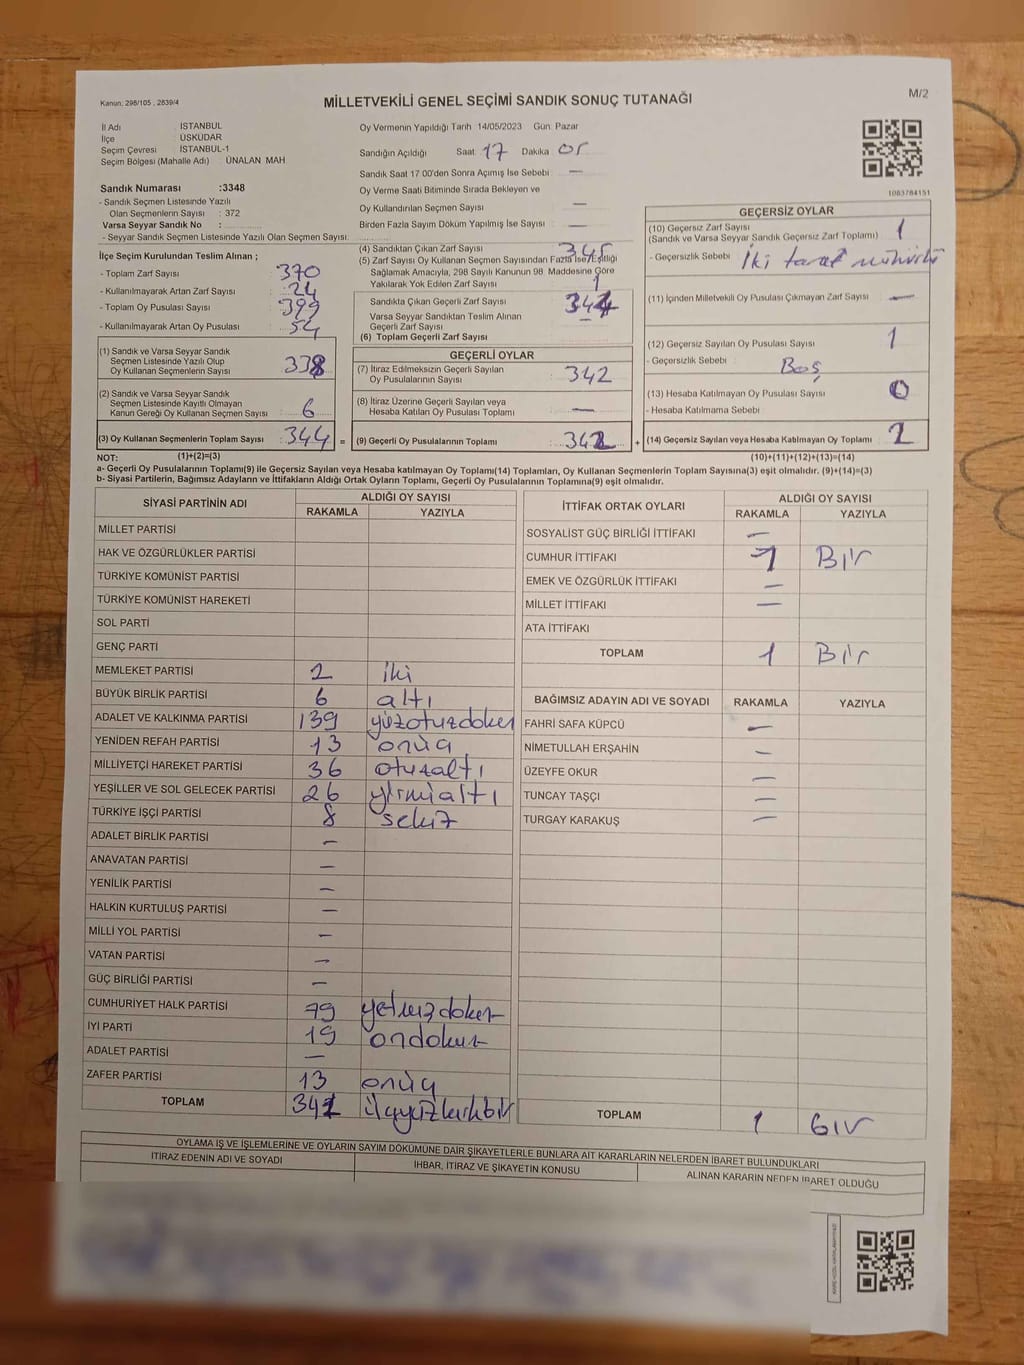 Kanun: 298/105 , 2839/4
MİLLETVEKİLİ GENEL SEÇİMİ SANDIK SONUÇ TUTANAĞI
M/2
İl Adı : İSTANBUL
İlçe : ÜSKÜDAR
Seçim Çevresi : İSTANBUL-1
Seçim Bölgesi (Mahalle Adı) : ÜNALAN MAH
Oy Vermenin Yapıldığı Tarih 14/05/2023 Gün: Pazar
Sandığın Açıldığı Saat 17 Dakika
Sandık Saat 17:00'den Sonra Açımış İse Sebebi —
Oy Verme Saati Bitiminde Sırada Bekleyen ve
Oy Kullandırılan Seçmen Sayısı —
Birden Fazla Sayım Döküm Yapılmış İse Sayısı —
1083784151
Sandık Numarası :3348
- Sandık Seçmen Listesinde Yazılı
Olan Seçmenlerin Sayısı : 372
Varsa Seyyar Sandık No :
- Seyyar Sandık Seçmen Listesinde Yazılı Olan Seçmen Sayısı:
İlçe Seçim Kurulundan Teslim Alınan ;
- Toplam Zarf Sayısı : 370
- Kullanılmayarak Artan Zarf Sayısı : 24
- Toplam Oy Pusulası : 399
- Kullanılmayarak Artan Oy Pusulası : 54
(1) Sandık ve Varsa Seyyar Sandık
Seçmen Listesinde Yazılı Olup
Oy Kullanan Seçmenlerin Sayısı : 338
(2) Sandık ve Varsa Seyyar Sandık
Seçmen Listesinde Kayıtlı Olmayan
Kanun Gereği Oy Kullanan Seçmen Sayısı : 6
(3) Oy Kullanan Seçmenlerin Toplam Sayısı : 344 =
(4) Sandıktan Çıkan Zarf Sayısı : 345
(5) Zarf Sayısı Oy Kullanan Seçmen Sayısından Fazla İse / Eşitliği
Sağlamak Amacıyla, 298 Sayılı Kanunun 98. Maddesine Göre
Yakılarak Yok Edilen Zarf Sayısı : 1
Sandıkta Çıkan Geçerli Zarf Sayısı : 344
Varsa Seyyar Sandıktan Teslim Alınan
Geçerli Zarf Sayısı : —
(6) Toplam Geçerli Zarf Sayısı :
GEÇERLİ OYLAR
(7) İtiraz Edilmeksizin Geçerli Sayılan
Oy Pusulalarının Sayısı : 342
(8) İtiraz Üzerine Geçerli Sayılan veya
Hesaba Katılan Oy Pusulası Toplamı : —
(9) Geçerli Oy Pusulalarının Toplamı : 342 +
GEÇERSİZ OYLAR
(10) Geçersiz Zarf Sayısı : 1
(Sandık ve Varsa Seyyar Sandık Geçersiz Zarf Toplamı)
- Geçersizlik Sebebi : İki taraf mühürlü
(11) İçinden Milletvekili Oy Pusulası Çıkmayan Zarf Sayısı : —
(12) Geçersiz Sayılan Oy Pusulası Sayısı : 1
- Geçersizlik Sebebi : Boş
(13) Hesaba Katılmayan Oy Pusulası Sayısı : 0
- Hesaba Katılmama Sebebi :
(14) Geçersiz Sayılan veya Hesaba Katılmayan Oy Toplamı : 2
NOT: (1)+(2)=(3) (10)+(11)+(12)+(13)=(14)
a- Geçerli Oy Pusulalarının Toplamı(9) ile Geçersiz Sayılan veya Hesaba katılmayan Oy Toplamı(14) Toplamları, Oy Kullanan Seçmenlerin Toplam Sayısına(3) eşit olmalıdır. (9)+(14)=(3)
b- Siyasi Partilerin, Bağımsız Adayların ve İttifakların Aldığı Ortak Oyların Toplamı, Geçerli Oy Pusulalarının Toplamına(9) eşit olmalıdır.
SİYASİ PARTİNİN ADI ALDIĞI OY SAYISI
RAKAMLA YAZIYLA
MİLLET PARTİSİ
HAK VE ÖZGÜRLÜKLER PARTİSİ
TÜRKİYE KOMÜNİST PARTİSİ
TÜRKİYE KOMÜNİST HAREKETİ
SOL PARTİ
GENÇ PARTİ
MEMLEKET PARTİSİ 2 iki
BÜYÜK BİRLİK PARTİSİ 6 altı
ADALET VE KALKINMA PARTİSİ 139 yüzotuzdokuz
YENİDEN REFAH PARTİSİ 13 onüç
MİLLİYETÇİ HAREKET PARTİSİ 36 otuzaltı
YEŞİLLER VE SOL GELECEK PARTİSİ 26 yirmialtı
TÜRKİYE İŞÇİ PARTİSİ 8 sekiz
ADALET BİRLİK PARTİSİ —
ANAVATAN PARTİSİ —
YENİLİK PARTİSİ —
HALKIN KURTULUŞ PARTİSİ —
MİLLİ YOL PARTİSİ —
VATAN PARTİSİ —
GÜÇ BİRLİĞİ PARTİSİ —
CUMHURİYET HALK PARTİSİ 79 yetmişdokuz
İYİ PARTİ 19 ondokuz
ADALET PARTİSİ —
ZAFER PARTİSİ 13 onüç
TOPLAM 341 üçyüzkırkbir
İTTİFAK ORTAK OYLARI ALDIĞI OY SAYISI
RAKAMLA YAZIYLA
SOSYALİST GÜÇ BİRLİĞİ İTTİFAKI —
CUMHUR İTTİFAKI 1 Bir
EMEK VE ÖZGÜRLÜK İTTİFAKI —
MİLLET İTTİFAKI —
ATA İTTİFAKI
TOPLAM 1 Bir
BAĞIMSIZ ADAYIN ADI VE SOYADI RAKAMLA YAZIYLA
FAHRİ SAFA KÜPCÜ —
NİMETULLAH ERŞAHİN —
ÜZEYFE OKUR —
TUNCAY TAŞÇI —
TURGAY KARAKUŞ —
TOPLAM 1 bir
OYLAMA İŞ VE İŞLEMLERİNE VE OYLARIN SAYIM DÖKÜMÜNE DAİR ŞİKAYETLERLE BUNLARA AİT KARARLARIN NELERDEN İBARET BULUNDUKLARI
İTİRAZ EDENİN ADI VE SOYADI İHBAR, İTİRAZ VE ŞİKAYETİN KONUSU ALINAN KARARIN NEDEN İBARET OLDUĞU